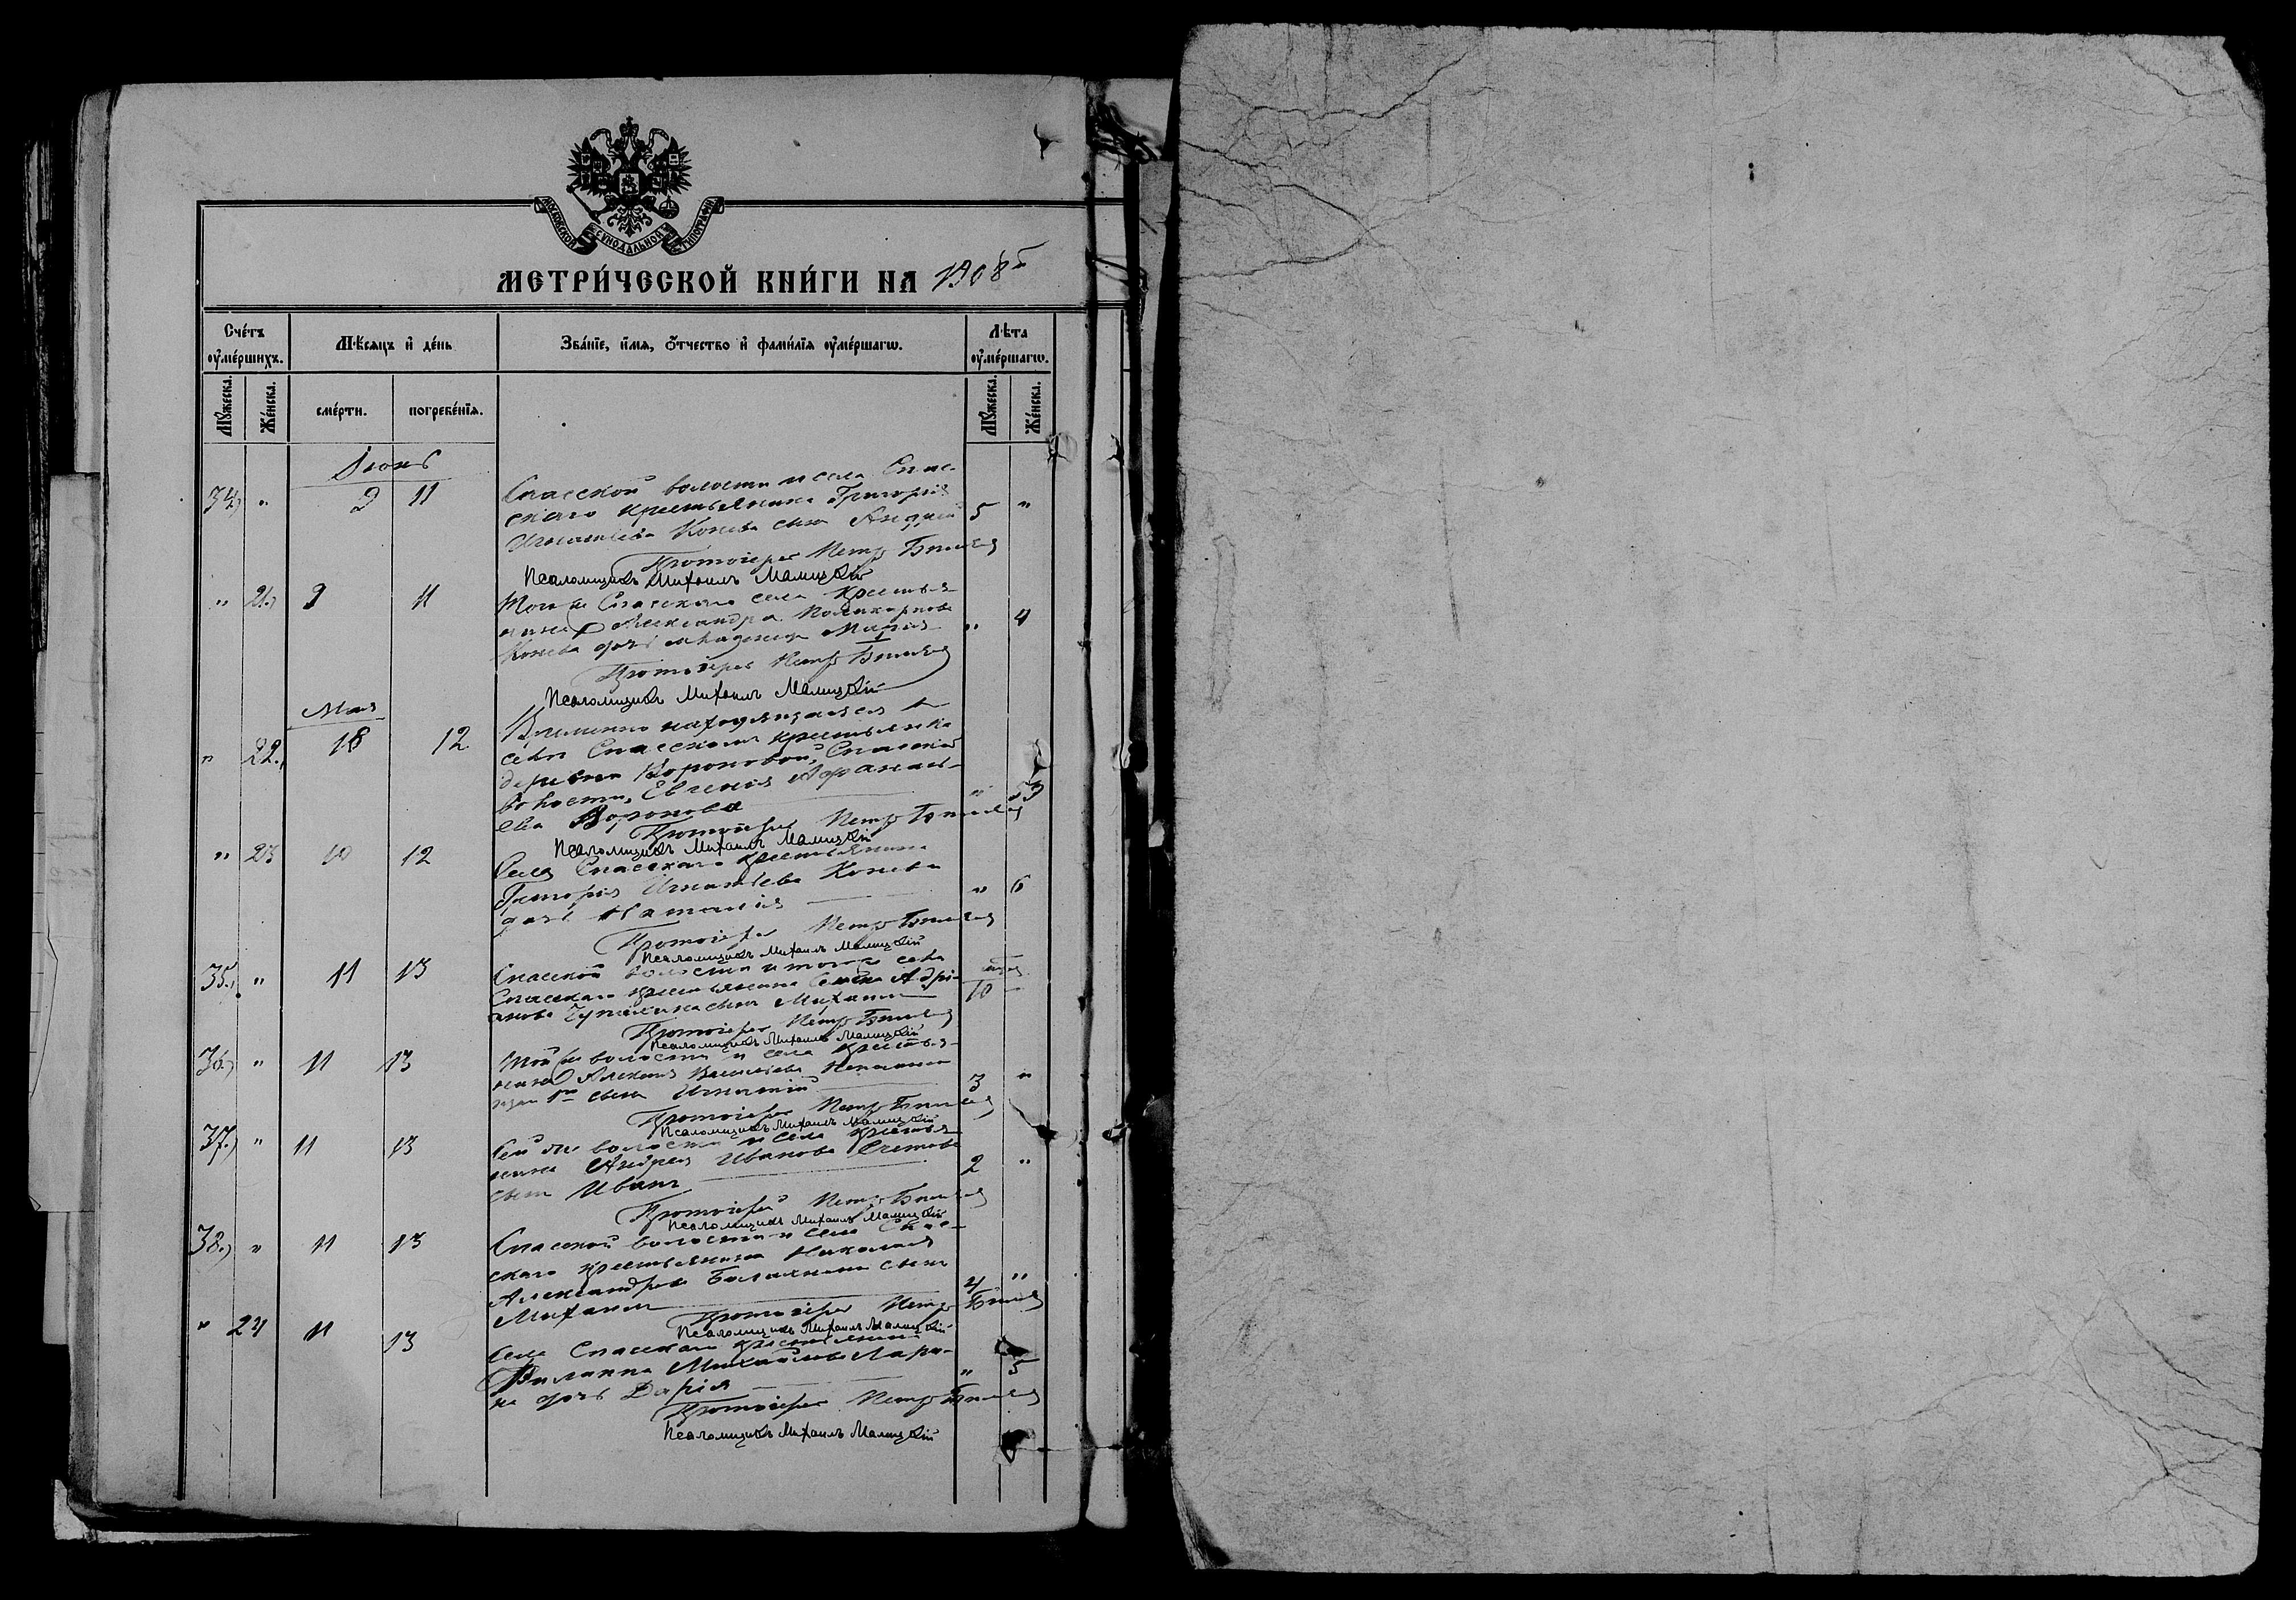 МОСКОВСКОЙ СѴНОДАЛЬНОЙ ТИПОГРАФІИ
МЕТРИ́ЧЕСКОЙ КНИ́ГИ НА 1908 г.
Сче́тъ ᲂу҆ме́ршихъ.
Мѣ́сяцъ и҆ де́нь
Зва́нїе, и҆́мѧ, ѻ҆́тчество и҆ фами́лїѧ ᲂу҆ме́ршагѡ.
Лѣ́та ᲂу҆ме́ршагѡ.
Мꙋ́жеска. Же́нска. сме́рти. погребе́нїѧ. Мꙋ́жеска. Же́нска.
Іюнь
34) " 9 11 Спасской волости и села Спас-
скаго крестьянина Григорія
Игнатіева Конева сынъ Андрей 5 "
Протоіерей Петръ
Псаломщикъ Михаилъ Малицкій
" 21) 9 11 Того же Спасскаго села крестья-
нина Александра Поликарпова
Конева дочь младенецъ Марія " 4
Протоіерей Петръ
Псаломщикъ Михаилъ Малицкій
Мая
" 22., 18 12 Временно находящаяся въ
селѣ Спасскомъ крестьянка
деревни Вороновой, Спасской
волости, Евгенія Афанась-
ева Воронова "
Протоіерей Петръ
Псаломщикъ Михаилъ Малицкій
" 23 10 12 Села Спасскаго крестьянина
Григорія Игнатіева Конева
дочь Наталія " 6
Протоіерей Петръ
Псаломщикъ Михаилъ Малицкій
35., " 11 13 Спасской волости и того же села
Спасскаго крестьянина Адрі-
анова сынъ Михаилъ 10
Протоіерей Петръ
Псаломщикъ Михаилъ Малицкій
36.) " 11 13 Той же волости и села крестья-
нина Алексія Васильева
сынъ Игнатій 3 "
Протоіерей Петръ
Псаломщикъ Михаилъ Малицкій
37.) " 11 13 Сей же волости и села крестья-
нина Андрея Иванова
сынъ Иванъ 2 "
Протоіерей Петръ
Псаломщикъ Михаилъ Малицкій
38.) " 11 13 Спасской волости и села Спас-
скаго крестьянина Николая
Александрова сынъ
Михаилъ 4 "
Протоіерей Петръ
Псаломщикъ Михаилъ Малицкій
" 24 11 13 Села Спасскаго крестьянина
Филиппа Михайлова Лари-
на дочь Дарія " 5
Протоіерей Петръ
Псаломщикъ Михаилъ Малицкій